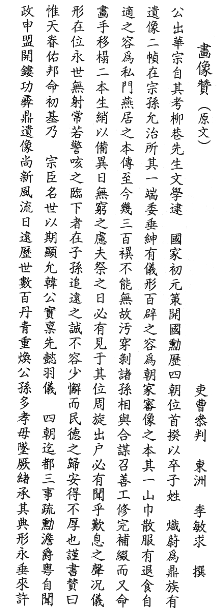 畫像贊(原文)
吏曹參判 東洲 李敏求 撰
公出華宗自其考柳巷先生文學達 國家初元策開國勳歷四朝位首揆以卒子姓 熾蔚爲鼎族有
遺像二幀在宗孫允治所其一端委垂紳有儀形百辟之容爲朝家審像之本其一山巾散服有退食自
適之容爲私門燕居之本傳至今幾三百禩不能無故汚穿剝諸孫相與合謀召善工修完補綴而又命
畫手移榻二本生綃以備異日無窮之慮夫祭之日必有見于其位周旋出户必有聞乎歎息之聲况儀
形在位永世無射常若警咳之臨下者在子孫追遠之誠不容少懈而民德之歸安得不厚也謹書贊曰
惟天眷佑邦命初基乃 宗臣名世以期顯允韓公實爲先懿羽儀 四朝迄都三事疏勳澹爵粤自聞
政申盟開鏤功彛鼎遺像尚新風流日遠歷世數百丹青重煥公孫多孝毋墜厥緒承其典形永垂來許